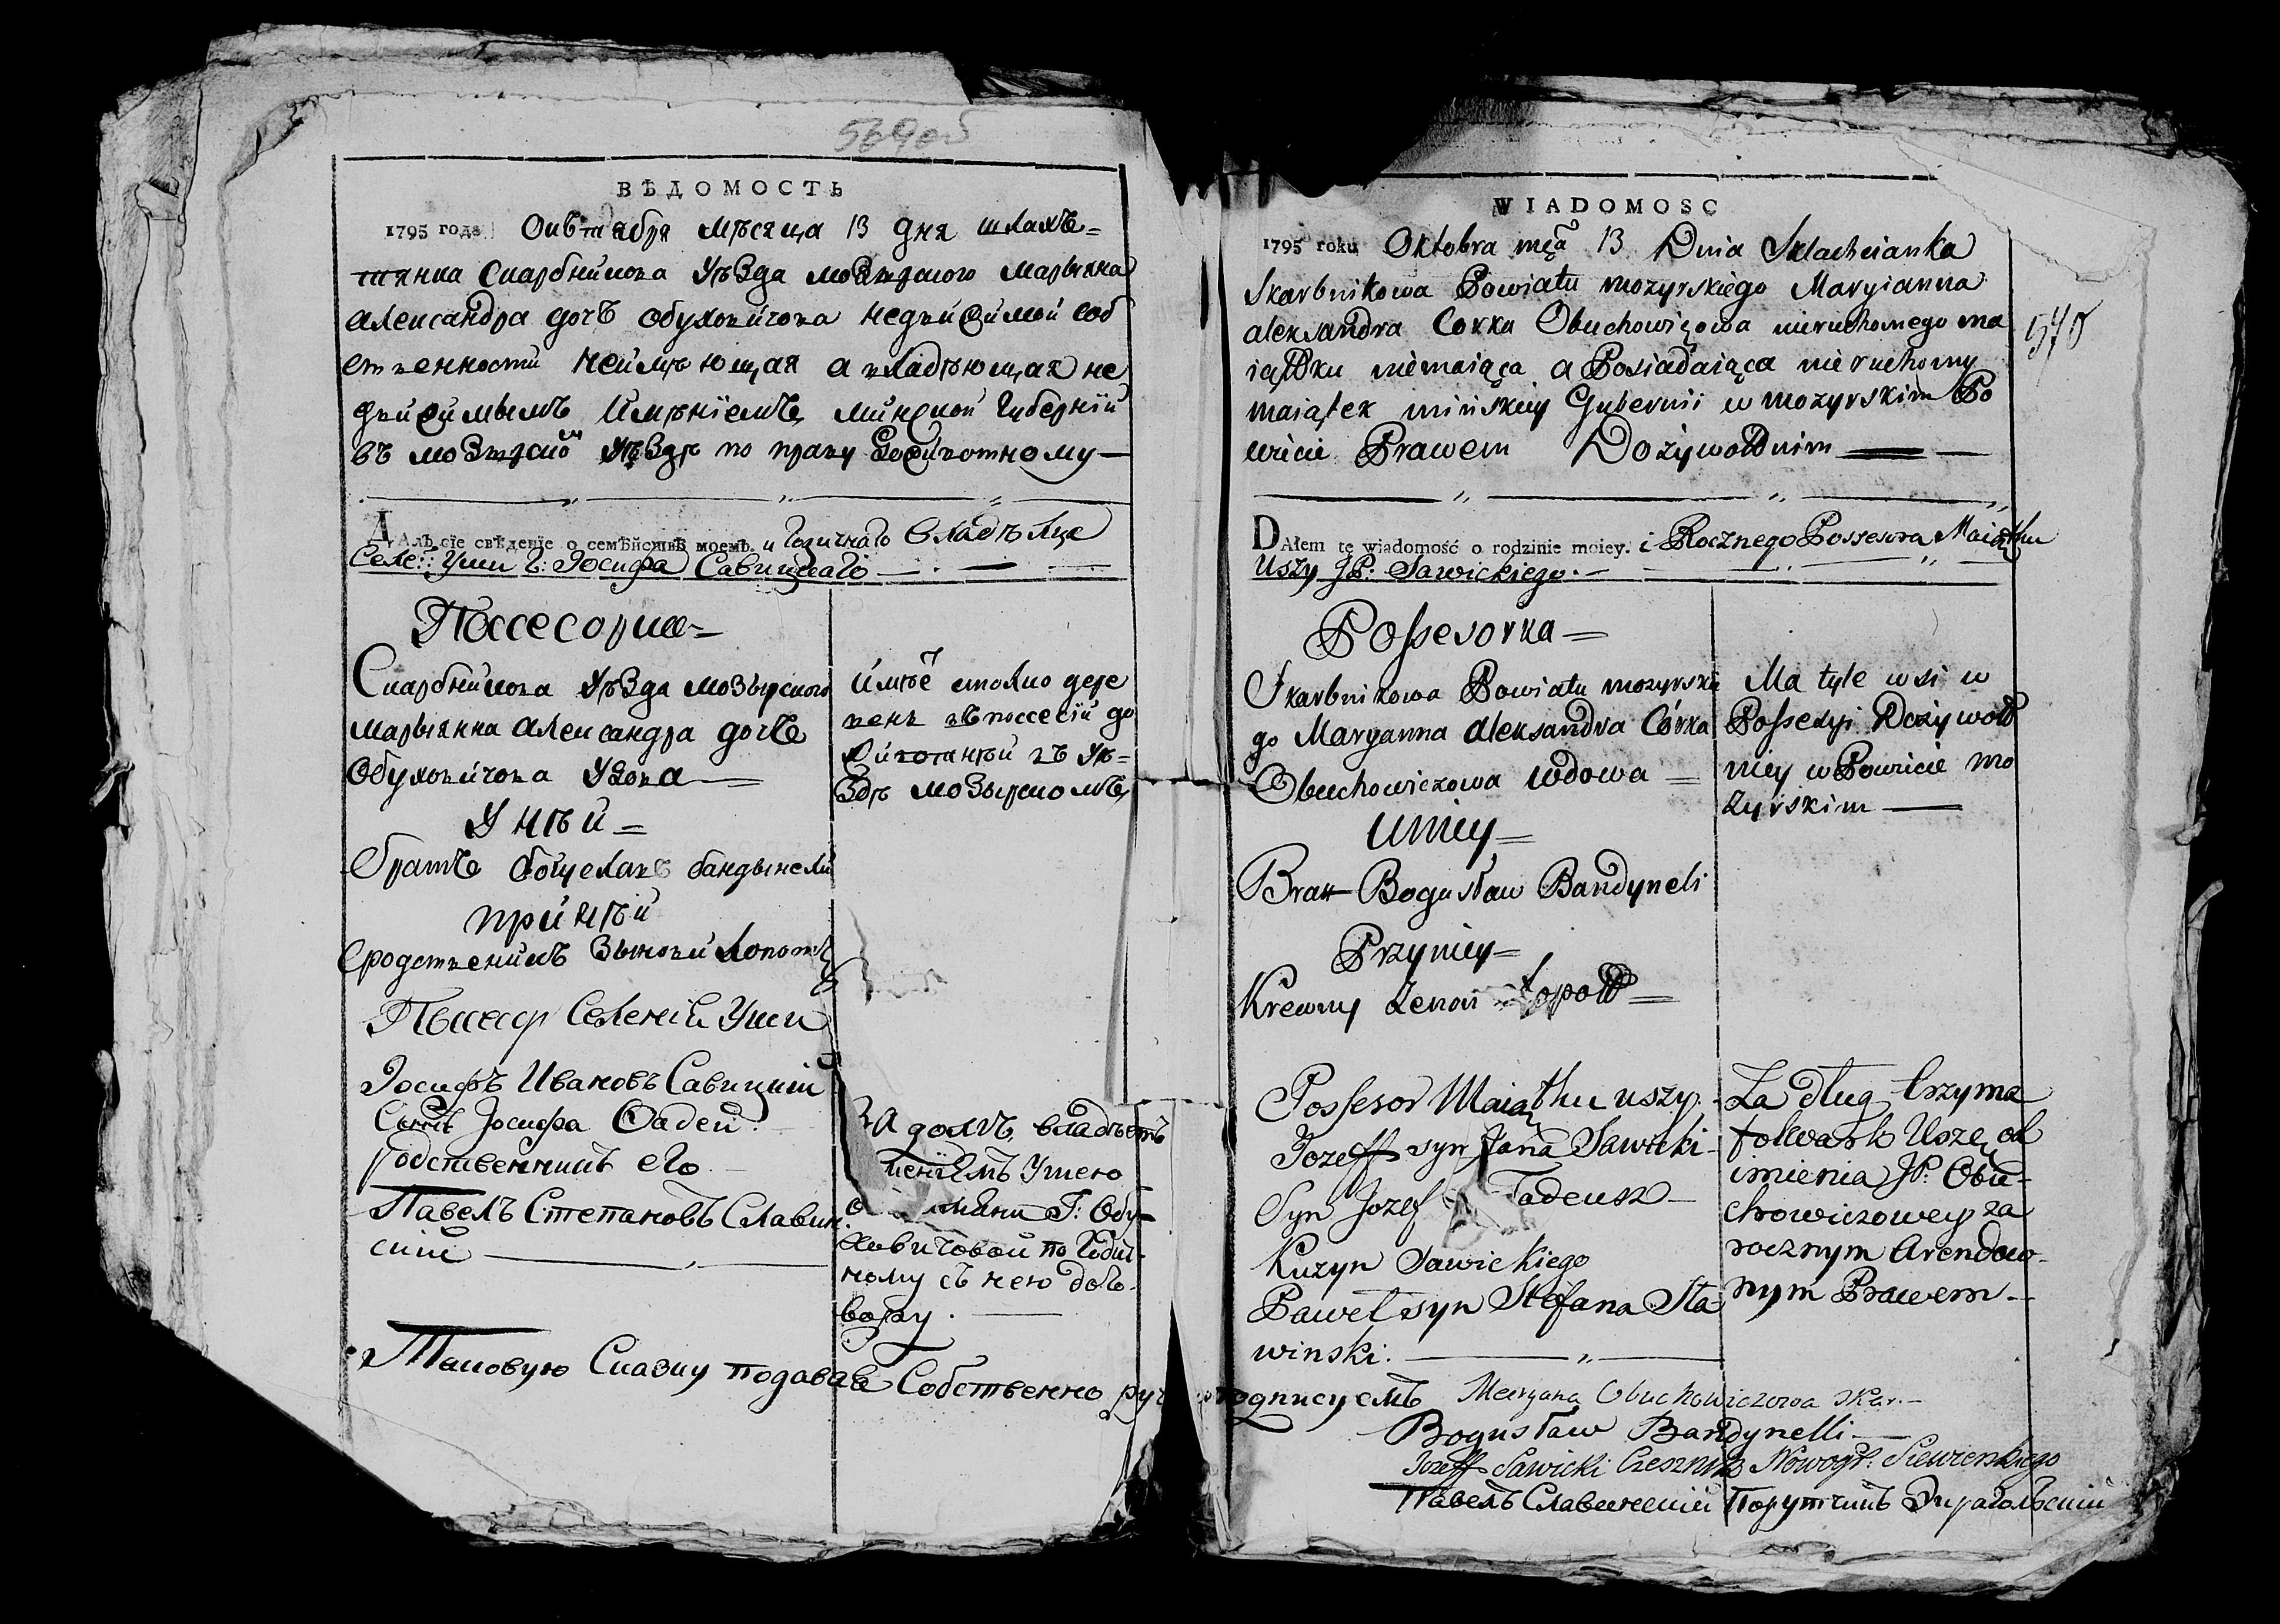 569об
ВѢДОМОСТЬ
1795 года Октября мѣсяца 13 дня шляхъ=
тянка Скарбникова уѣзда мозырского марыяна
александра дочь обуховичова недвижимой соб
ственности неимѣющая а владѣющая не
движимымъ имѣніемъ минской губерніи
въ мозырском уѣздѣ по праву доживотному—
Далъ сіе свѣденіе о семѣйствѣ моемъ. и годичнаго владѣлце
Селе: Уши Г: Іосифа Савицкаго
Поссесорка=
Скарбникова уѣзда мозырского
марыянна александра дочь
Обуховичова удова
У ней=
братъ богуславъ бандынели
при ней
сродственикъ
Поссесор Селеній Уши
Іосифъ Ивановъ Савицкій
Сынъ Іосифа Фадей.
родственникъ его
Павелъ Степановъ Славин
скій
имѣет столко дере
вень въ поссесіи до
животней въ уѣ=
здѣ мозырскомъ
За долгъ владѣетъ
Ушею
Г: Обу-
ховичовой по годич-
ному съ нею дого-
вору.
Таковую Сказку подавая Собственно руч подписуемъ
WIADOMOSC
1795 roku Oktobra mca 13 Dnia Szlachcianka
Skarbnikowa Powiatu mozyrskiego Maryianna
aleksandra Corka Obuchowiczowa nieruchomego ma
iątku niemaiąca a Posiadaiąca nieruchomy
maiątek mińskiey Gubernii w mozyrskim Po
wiecie Prawem Dożywotnim
570
DAłem tę wiadomość o rodzinie moiey. i Rocznego Possesora Maiątku
Uszy JP: Sawickiego.
Possesorka=
Skarbnikowa Powiatu mozyrskie
go Maryanna aleksandra Córka
Obuchowiczowa wdowa=
U niey=
Brat Bogusław Bandyneli
Przy niey=
Krewny Zenon Łopott=
Ma tyle wsi w
Possesyi Dożywot
niey w Powiecie mo
zyrskim
Possesor Maiątku Uszy.
Jozeff syn Jana Sawicki
Syn Jozefa Tadeusz
Kuzyn Sawickiego
Paweł syn Stefana Sła
winski.
Za dług trzyma
folwark Uszę od
imienia JP: Obu-
chowiczowey za
rocznym Arendow-
nym Prawem
Maryana Obuchowiczowa Skar.
Bogusław Bandynelli
Jozeff Sawicki Czesznik Nowogr: Siewierskiego
Павелъ Славинскій Порутчикъ